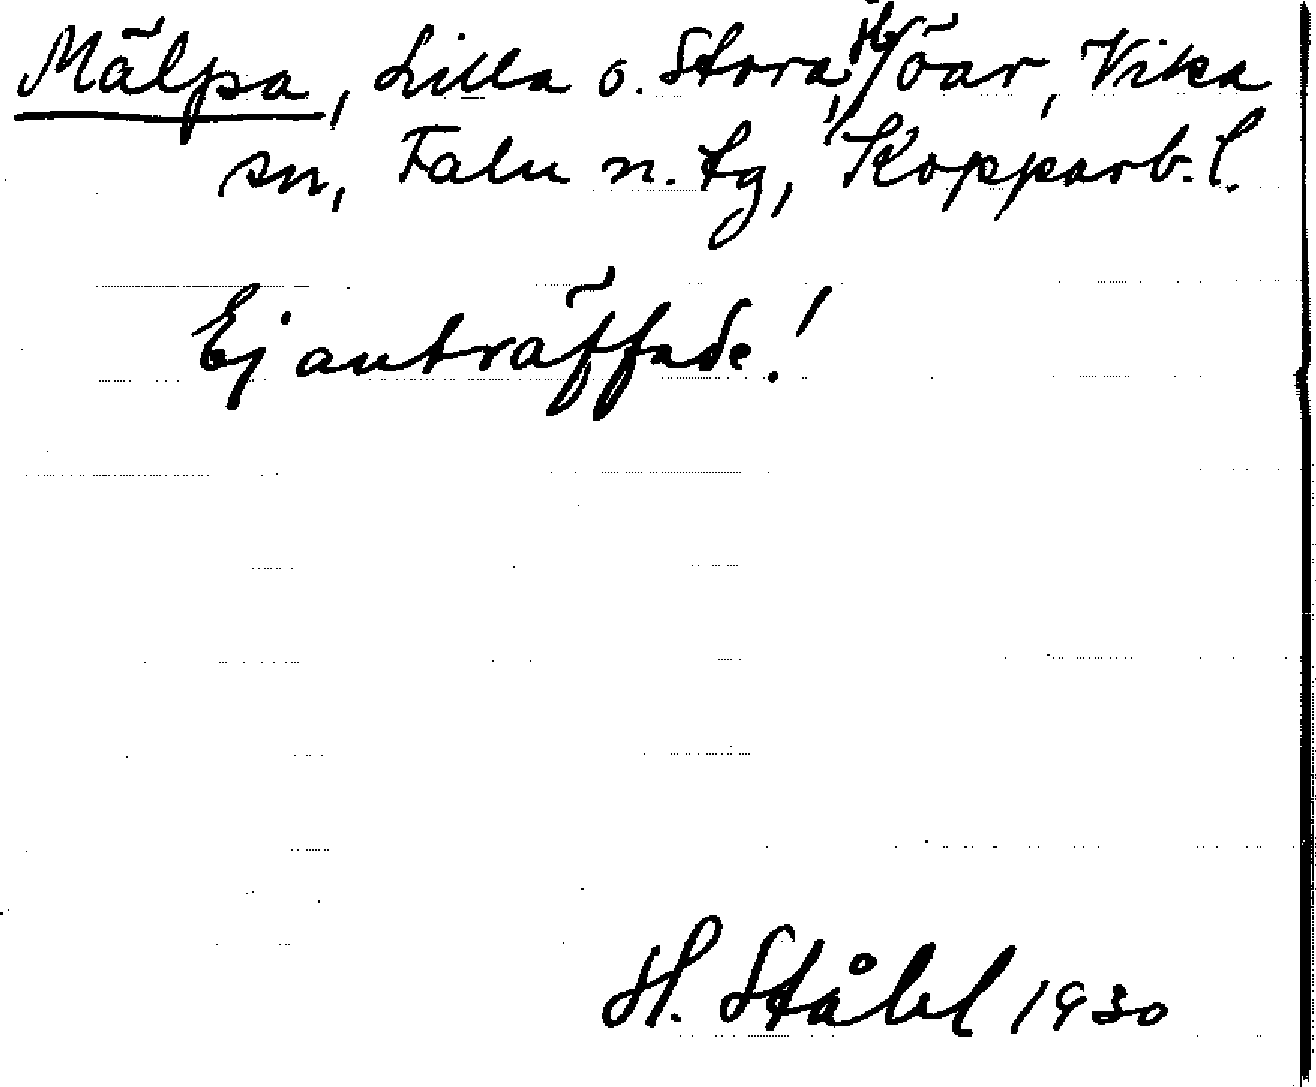 Mälpa, Lilla o. Stora, öar, Vika
sn, Falu n. tg, Kopparb. l.
Ej anträffade!
H. Ståhl 1930